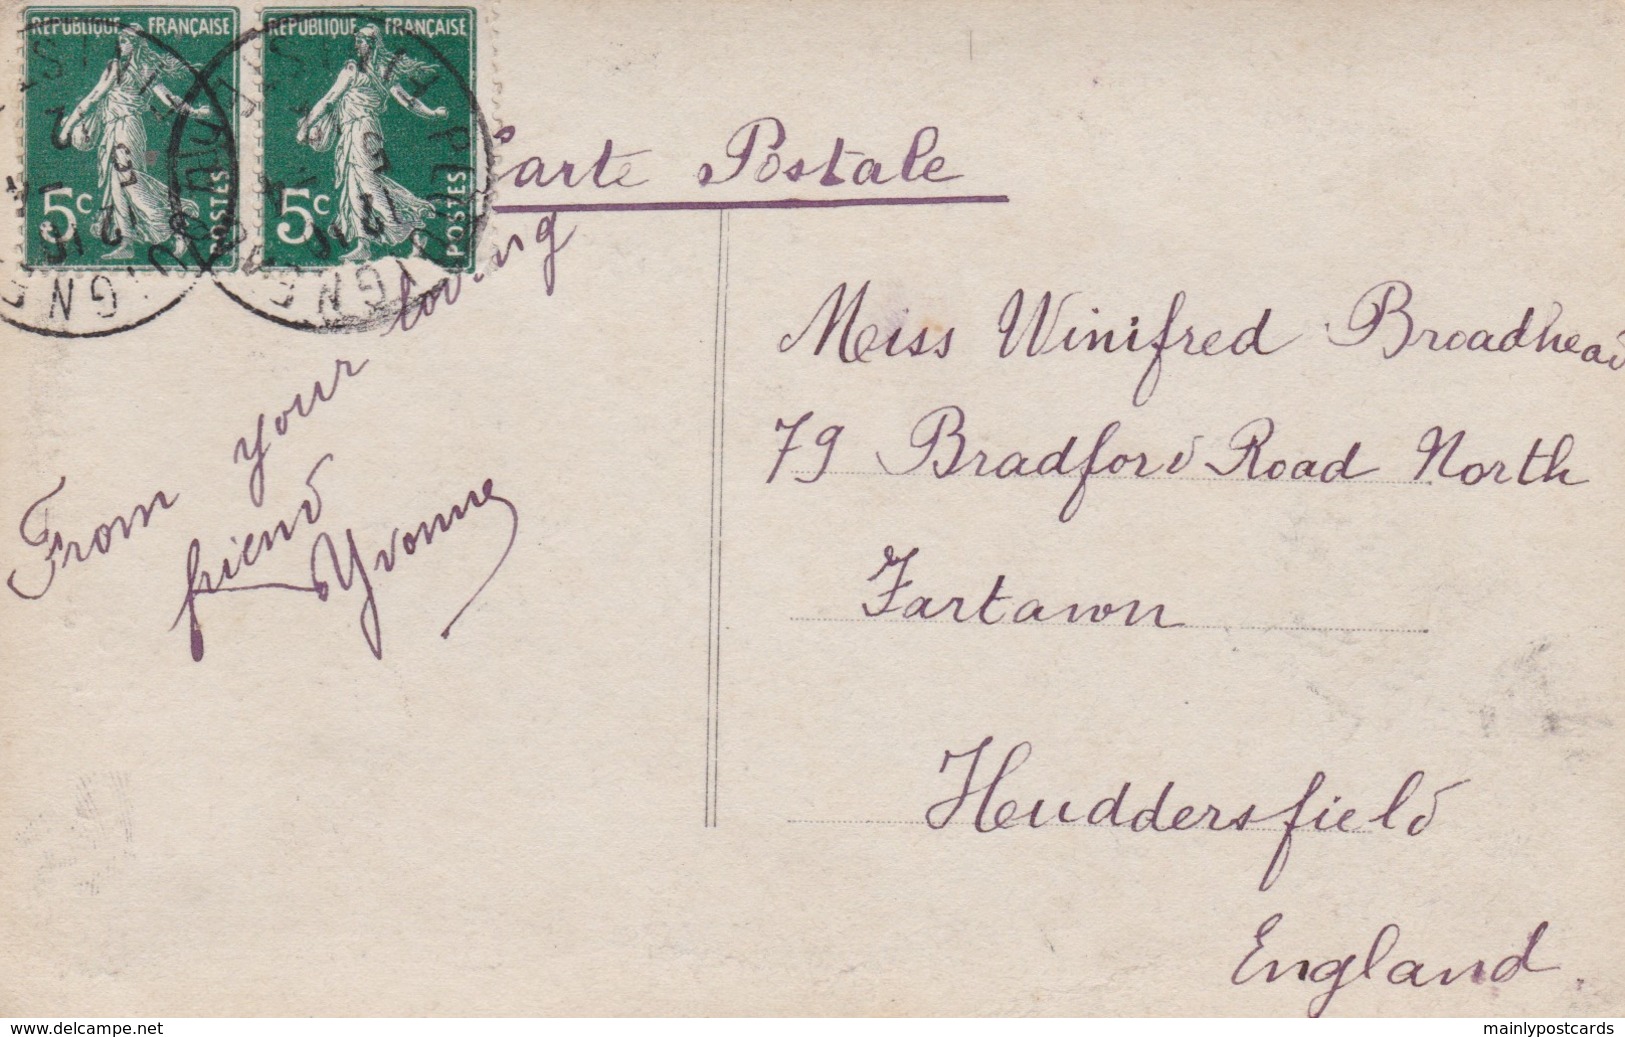 REPUBLIQUE FRANÇAISE
REPUBLIQUE FRANÇAISE
5c POSTES
5c POSTES
Carte Postale
From your loving
friend
Yvonne
Miss Winifred Broadhead
79 Bradford Road North
Fartawn
Huddersfield
England.
www.delcampe.net
mainlypostcards